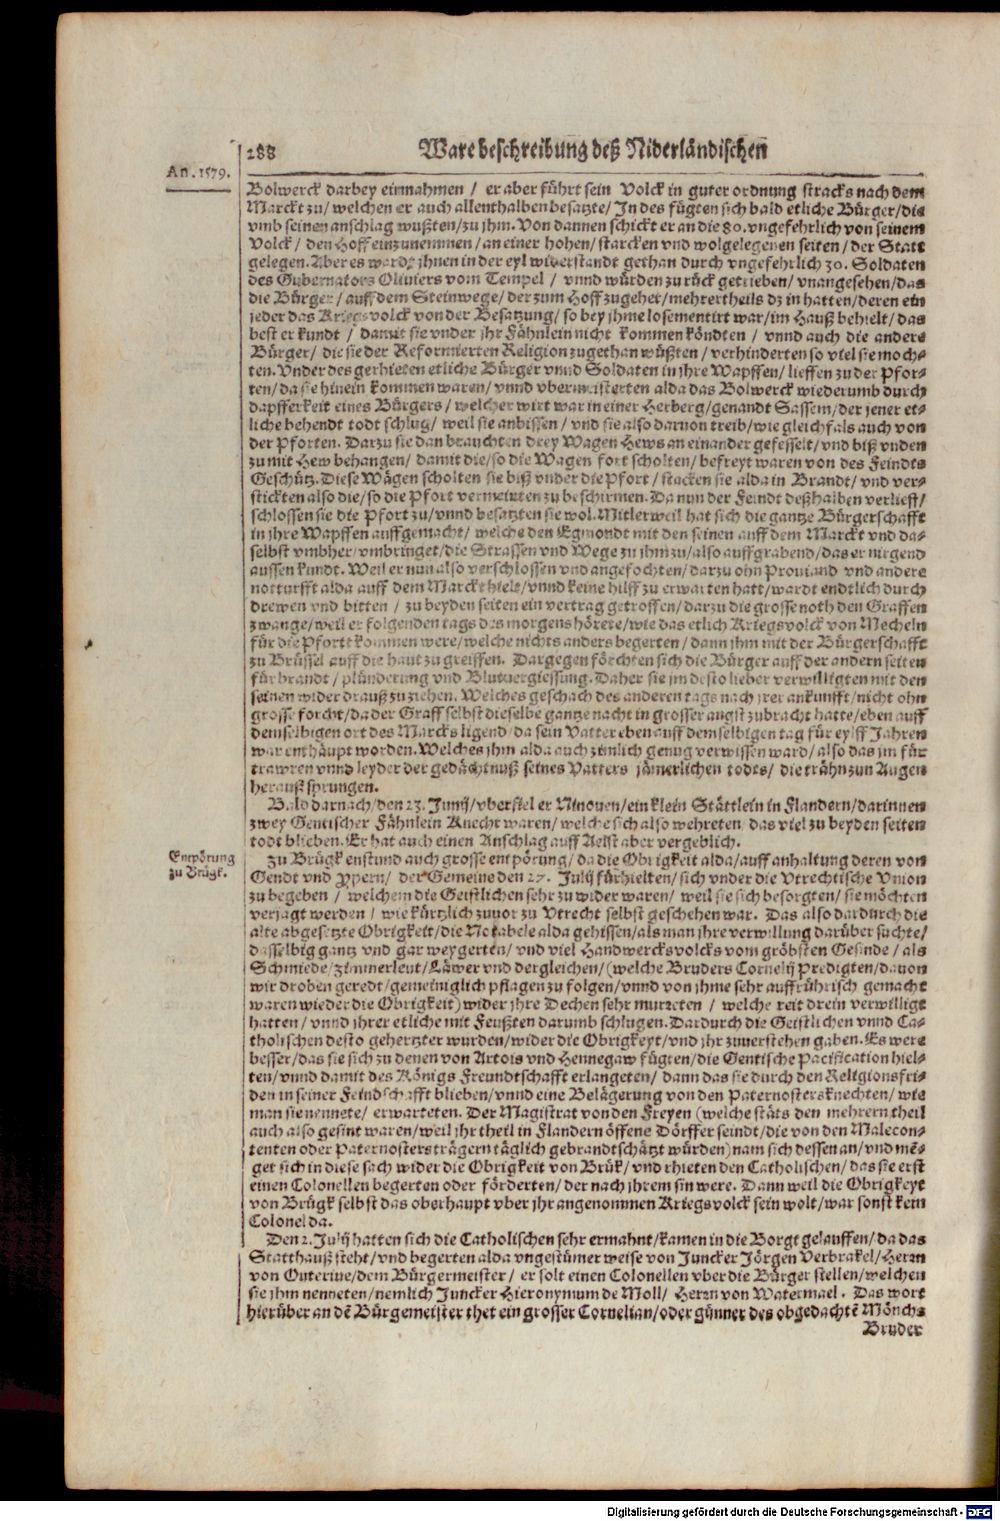 288 Ware beschreibung deß Niderländischen
An. 1579.
Bolwerck darbey einnahmen / er aber führt sein Volck in guter ordnung stracks nach dem
Marckt zu / welchen er auch allenthalben besatzte / In des fügten sich bald etliche Bürger / die
vmb seinen anschlag wußten / zu jhm. Von dannen schickt er an die 80. vngefehrlich von seinem
Volck / den Hoff einzunemmen / an einer hohen / starcken vnd wolgelegenen seiten / der Statt
gelegen. Aber es warde jhnen in der eyl widerstandt gethan durch vngefehrlich 30. Soldaten
des Gubernators Oliuiers vom Tempel / vnnd würden zurück getrieben / vnangesehen / das
die Bürger / auff dem Steinwege / der zum Hoff zugehet / mehrertheils dz in hatten / deren ein
jeder das Kriegsvolck von der Besatzung / so bey jhme losementirt war / im Hauß behielt / das
best er kundt / damit sie vnder jhr Fähnlein nicht kommen köndten / vnnd auch die andere
Bürger / die sie der Reformierten Religion zugethan wüßten / verhinderten so viel sie moch-
ten. Vnder des gerhieten etliche Bürger vnnd Soldaten in jhre Wapffen / lieffen zu der Pfor-
ten / da sie hinein kommen waren / vnnd vbermeisterten alda das Bolwerck wiederumb durch
dapfferkeit eines Bürgers / welcher wirt war in einer Herberg / genandt Sassem / der jener et-
liche behendt todt schlug / weil sie anbissen / vnd sie also daruon treib / wie gleichfals auch von
der Pforten. Darzu sie dan brauchten drey Wagen Hews an einander gefesselt / vnd biß vnden
zu mit Hew behangen / damit die / so die Wagen fort scholten / befreyt waren von des Feindts
Geschütz. Diese Wägen scholten sie biß vnder die Pfort / stacken sie alda in Brandt / vnd ver-
stickten also die / so die Pfort vermeinten zu beschirmen. Da nun der Feindt deßhalben verlieff /
schlossen sie die Pfort zu / vnnd besatzten sie wol. Mitlerweil hat sich die gantze Bürgerschafft
in jhre Wapffen auffgemacht / welche den Egmondt mit den seinen auff dem Marckt vnd da-
selbst vmbher / vmbringet / die Strassen vnd Wege zu jhm zu / also auffgrabend / das er nirgend
aussen kundt. Weil er nun also verschlossen vnd angefochten / darzu ohn Prouiand vnd andere
notturfft alda auff dem Marckt hielt / vnnd keine hilff zu erwarten hatt / wardt endtlich durch
drewen vnd bitten / zu beyden seiten ein vertrag getroffen / darzu die grosse noth den Graffen
zwange / weil er folgenden tags des morgens hörete / wie das etlich Kriegsvolck von Mecheln
für die Pforte kommen were / welche nichts anders begerten / dann jhm mit der Bürgerschafft
zu Brüssel auff die haut zu greiffen. Dargegen förchten sich die Bürger auff der andern seiten
für brandt / plünderung vnd Blutvergiessung. Daher sie jm desto lieber verwilligten mit den
seinen wider drauß zu ziehen. Welches geschach des anderen tags nach jrer ankunfft / nicht ohn
grosse forcht / da der Graff selbst dieselbe gantze nacht in grosser angst zubracht hatte / eben auff
demselbigen ort des Marcks ligend / da sein Vatter eben auff demselbigen tag für eylff Jahren
war enthäupt worden. Welches jhm alda auch zimlich genug verwissen ward / also das jm für
trawren vnnd leyder der gedächtnuß seines Vatters jämerlichen todts / die trähn zun Augen
herauß sprungen.
Bald darnach / den 23. Junij / vberfiel er Ninouen / ein klein Stättlein in Flandern / darinnen
zwey Gentischer Fähnlein Knecht waren / welche sich also wehreten / das viel zu beyden seiten
todt blieben. Er hat auch einen Anschlag auff Aelst aber vergeblich.
Empörung
zu Brügk.
Zu Brügk enstund auch grosse entpörung / da die Obrigkeit alda / auff anhaltung deren von
Gendt vnd Ypern / der Gemeine den 27. Julij fürhielten / sich vnder die Vtrechtische Vnion
zu begeben / welchem die Geistlichen sehr zu wider waren / weil sie sich besorgten / sie möchten
verjagt werden / wie kürtzlich zuuor zu Vtrecht selbst geschehen war. Das also dardurch die
alte abgesetzte Obrigkeit / die Notabele alda gehissen / als man jhre verwillung darüber suchte /
dasselbig gantz vnd gar weygerten / vnd viel Handwercksvolcks vom gröbsten Gesinde / als
Schmiede / Zimmerleut / Läwer vnd dergleichen / (welche Bruders Cornelij Predigten / dauon
wir droben geredt / gemeiniglich pflagen zu folgen / vnnd von jhme sehr auffrührisch gemacht
waren wieder die Obrigkeit) wider jhre Dechen sehr murreten / welche reit drein verwilligt
hatten / vnnd jhrer etliche mit Feußten darumb schlugen. Dardurch die Geistlichen vnnd Ca-
tholischen desto gehertzter wurden / wider die Obrigkeyt / vnd jhr zuuerstehen gaben. Es were
besser / das sie sich zu denen von Artois vnd Hennegaw fügten / die Gentische Pacification hiel-
ten / vnnd damit des Königs Freundtschafft erlangeten / dann das sie durch den Religionsfri-
den in seiner Feindschafft blieben / vnnd eine Belägerung von den Paternostersknechten / wie
man sie nennete / erwarteten. Der Magistrat von den Freyen (welche stäts den mehrern theil
auch also gesint waren / weil jhr theil in Flandern öffene Dörffer seindt / die von den Malecon-
tenten oder Paternostersträgern täglich gebrandtschätzt würden) nam sich dessen an / vnd mẽ-
get sich in diese sach wider die Obrigkeit von Brük / vnd rhieten den Catholischen / das sie erst
einen Colonellen begerten oder förderten / der nach jhrem sin were. Dann weil die Obrigkeyt
von Brügk selbst das oberhaupt vber jhr angenommen Kriegsvolck sein wolt / war sonst kein
Colonel da.
Den 2. Julij hatten sich die Catholischen sehr ermahnt / kamen in die Borgt gelauffen / da das
Statthauß steht / vnd begerten alda vngestümer weise von Juncker Jörgen Verbrakel / Herrn
von Outeriue / dem Bürgermeister / er solt einen Colonellen vber die Bürger stellen / welchen
sie jhm nenneten / nemlich Juncker Hieronymum de Moll / Herrn von Watermael. Das wort
hierüber an dẽ Bürgemeister thet ein grosser Cornelian / oder günner des obgedachtẽ Mönchs
Bruder
Digitalisierung gefördert durch die Deutsche Forschungsgemeinschaft - DFG